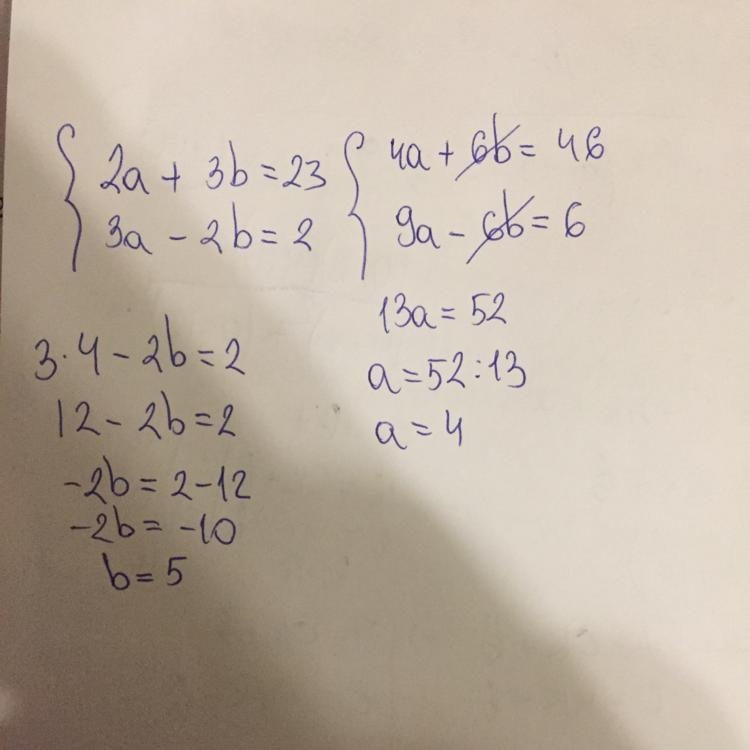 2a + 3b = 23
3a - 2b = 2
4a + 6b = 46
9a - 6b = 6
13a = 52
a = 52 : 13
a = 4
3 · 4 - 2b = 2
12 - 2b = 2
-2b = 2 - 12
-2b = -10
b = 5